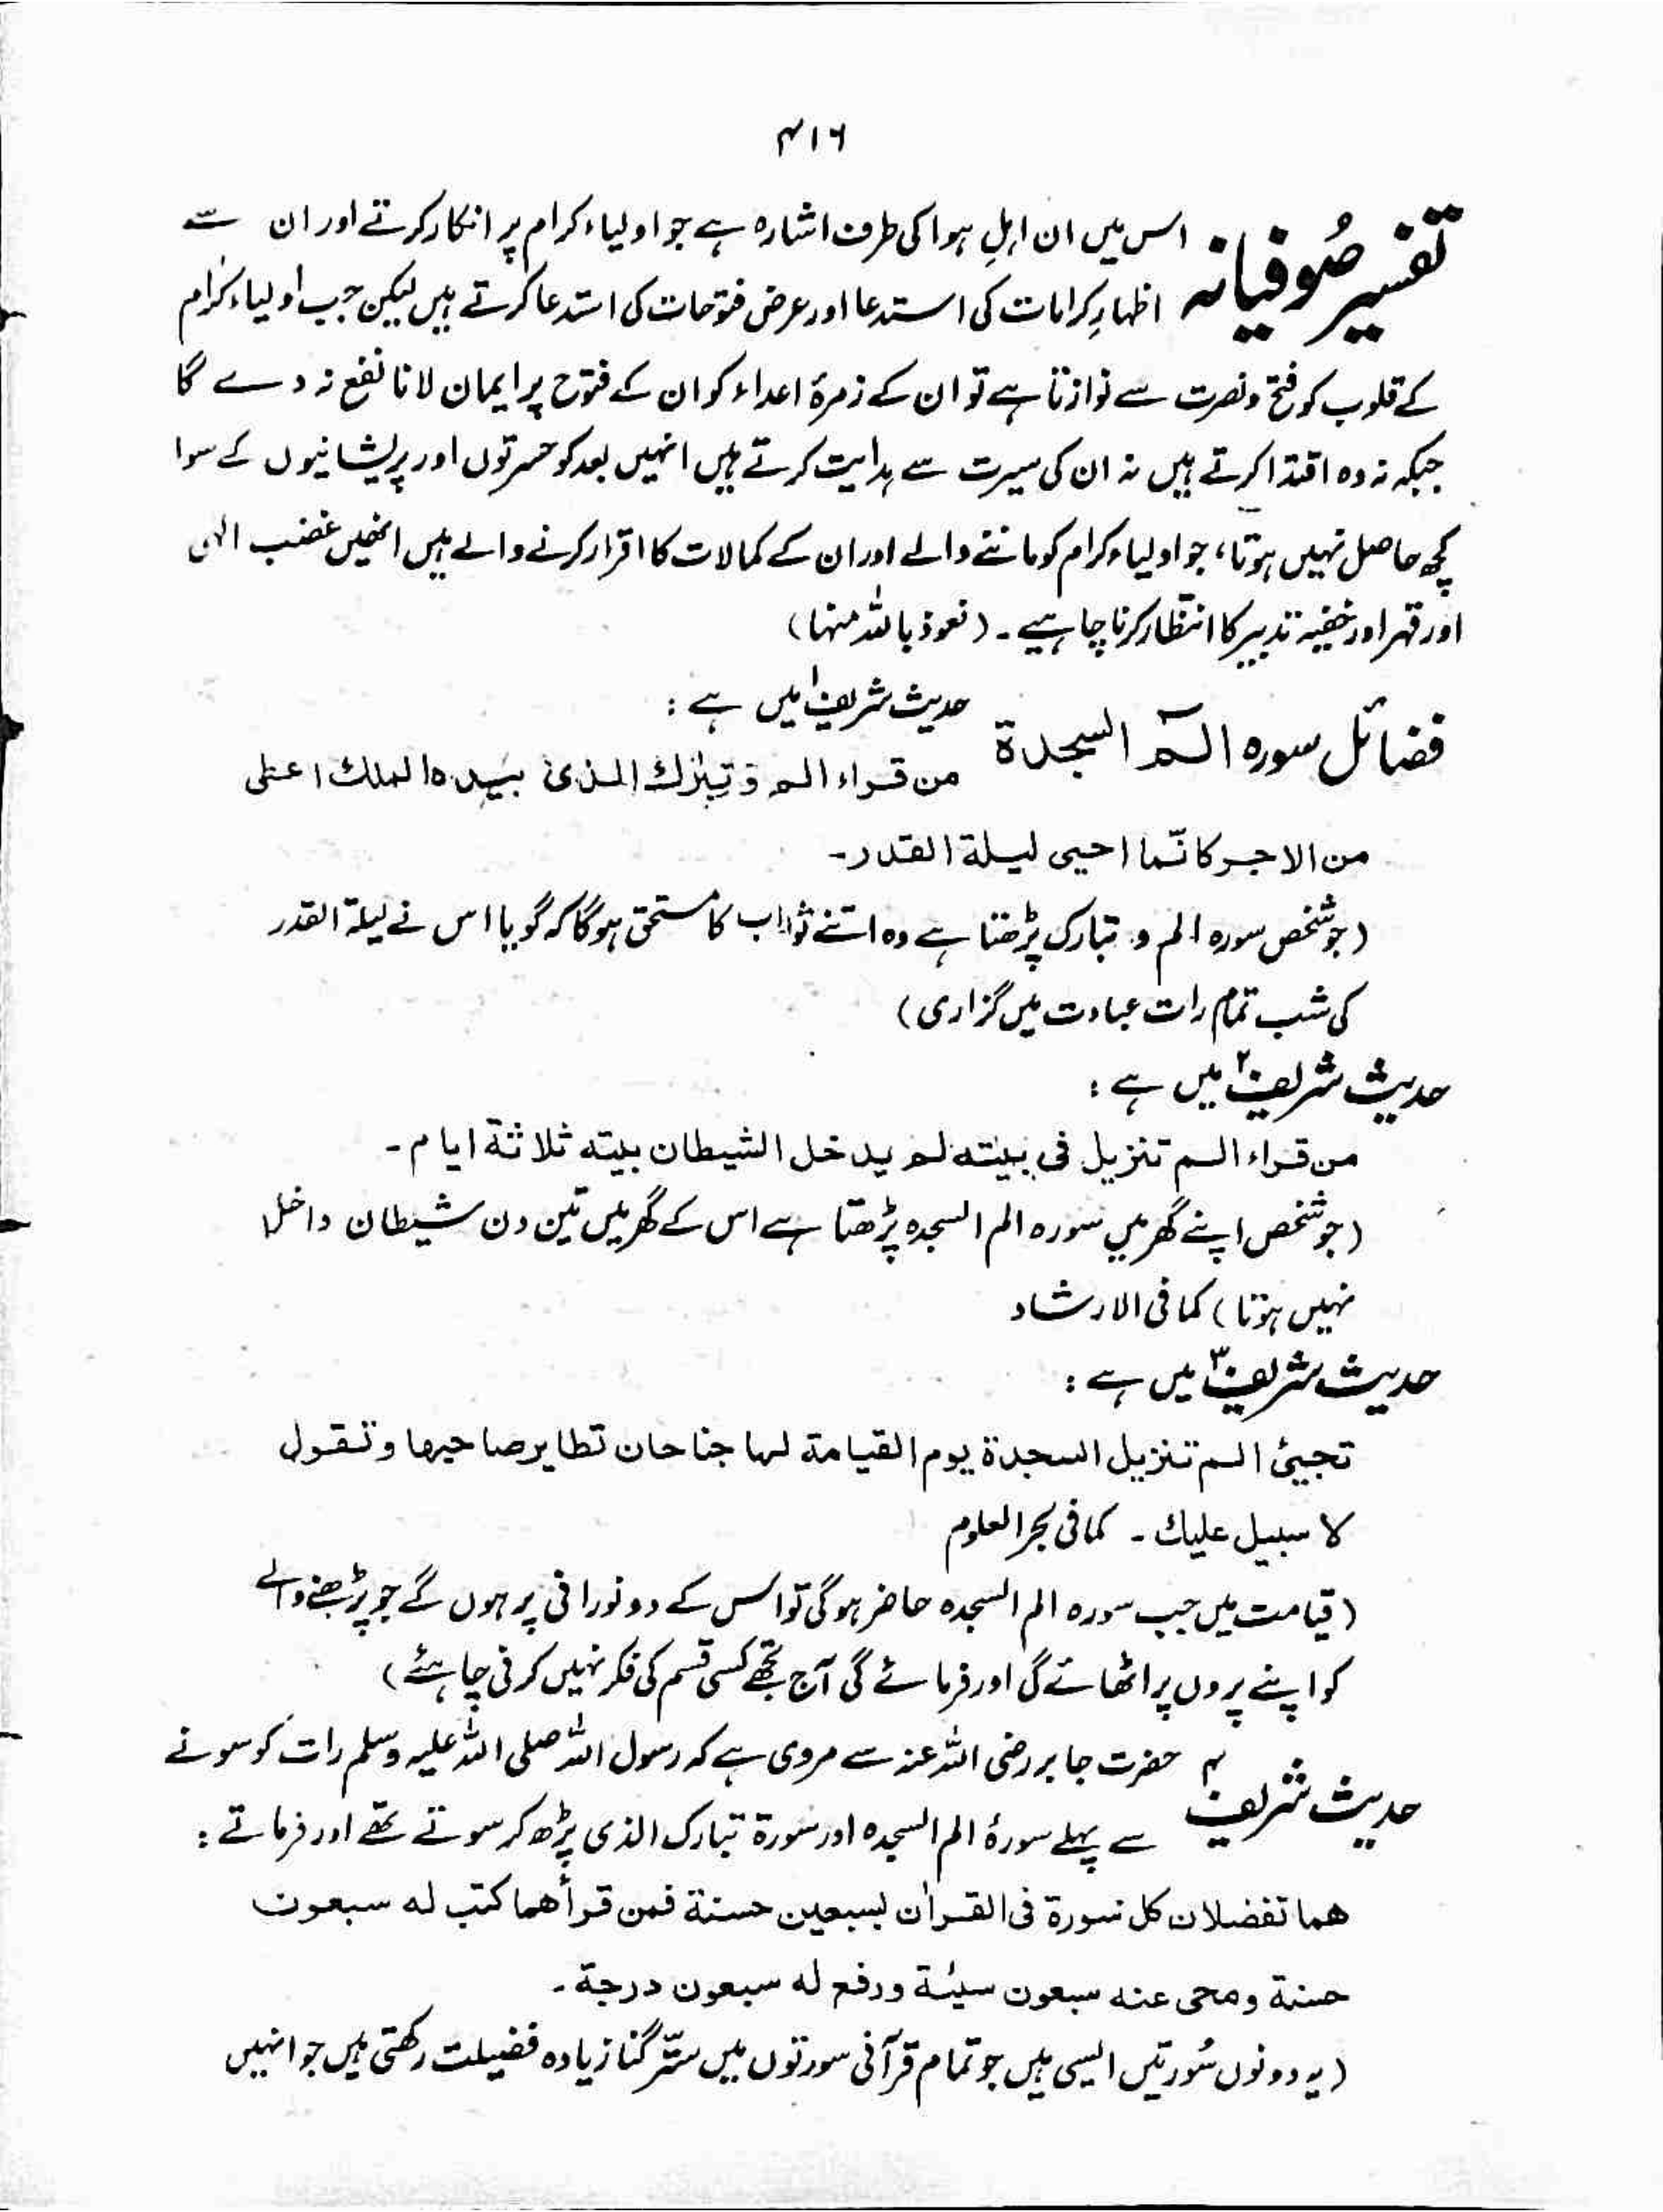 ۴۱۶
تفسیر صُوفیانہ اس میں ان اہلِ ہوا کی طرف اشارہ ہے جو اولیاء کرام پر انکار کرتے اور ان سے
اظہارِ کرامات کی استدعا اور عرض فتوحات کی استدعا کرتے ہیں لیکن جب اولیاء کرام
کے قلوب کو فتح و نصرت سے نوازتا ہے تو ان کے زمرۂ اعداء کو ان کے فتوح پر ایمان لانا نفع نہ دے گا
جبکہ نہ وہ اقتدا کرتے ہیں نہ ان کی سیرت سے ہدایت کرتے ہیں انہیں بعد کو حسرتوں اور پریشانیوں کے سوا
کچھ حاصل نہیں ہوتا، جو اولیاء کرام کو ماننے والے اور ان کے کمالات کا اقرار کرنے والے ہیں انھیں غضب الٰہی
اور قہر اور خفیہ تدبیر کا انتظار کرنا چاہیے ۔ (نعوذ باللہ منہا)
فضائل سورہ الٓمّ السجدة حدیث شریف۱ میں ہے :
من قراء الم و تبٰرك الذی بیده الملك اعطی
من الاجر کانّما احیی لیلة القدر۔
(جو شخص سورہ الم و تبارک پڑھتا ہے وہ اتنے ثواب کا مستحق ہوگا کہ گویا اس نے لیلۃ القدر
کی شب تمام رات عبادت میں گزاری)
حدیث شریف۲ میں ہے :
من قراء الم تنزیل فی بیته لم یدخل الشیطان بیته ثلاثة ایام ۔
(جو شخص اپنے گھر میں سورہ الم السجدہ پڑھتا ہے اس کے گھر میں تین دن شیطان داخل
نہیں ہوتا) کما فی الارشاد
حدیث شریف۳ میں ہے :
تجیئ الم تنزیل السجدة یوم القیامة لها جناحان تطایر صاحبها و تقول
لا سبیل علیك ۔ کما فی بحر العلوم
(قیامت میں جب سورہ الم السجدہ حاضر ہوگی تو اس کے دو نورانی پر ہوں گے جو پڑھنے والے
کو اپنے پروں پر اٹھائے گی اور فرمائے گی آج تجھے کسی قسم کی فکر نہیں کرنی چاہئے)
حدیث شریف۴ حضرت جابر رضی اللہ عنہ سے مروی ہے کہ رسول اللہ صلی اللہ علیہ وسلم رات کو سونے
سے پہلے سورۂ الم السجدہ اور سورۃ تبارک الذی پڑھ کر سوتے تھے اور فرماتے :
هما تفضلان کل سورة فی القراٰن بسبعین حسنة فمن قرأهما کتب له سبعون
حسنة و محی عنه سبعون سیئة و رفع له سبعون درجة ۔
(یہ دونوں سُورتیں ایسی ہیں جو تمام قرآنی سورتوں میں ستّر گنا زیادہ فضیلت رکھتی ہیں جو انہیں